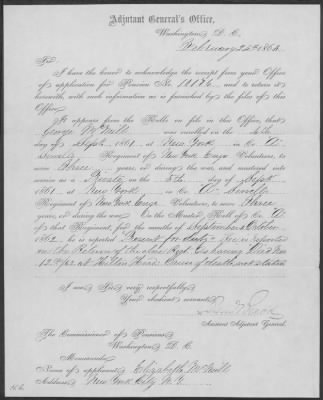 Adjutant General's Office,
Washington D. C.
February 24th 1864
Sir:
I have the honor to acknowledge the receipt from your Office
of application for Pension No. and to return it
herewith, with such information as is furnished by the files of this
Office.
It appears from the Rolls on file in this Office, that
George McNeill was enrolled on the
day of Sept 1861 at New York, in Co. A
Regiment of New York Engr Volunteers, to
serve Three years, or during the war, and mustered into
service as a on the day of Sept
1861 at New York, in Co. A
Regiment of New York Engr Volunteers, to serve Three
years, or during the war. On the Muster Roll of Co. A
of that Regiment, for the months of September & October
1862 he is reported Present for duty. He is reported
on the Return of the above Regt. as having Died Nov
12 1862 at Hilton Head. Cause of death not stated
I am Sir, Very respectfully,
Your obedient servant,
Assistant Adjutant General.
The Commissioner of Pensions,
Washington D. C.
Memoranda:
Name of applicant Elizabeth McNeill
Address New York City N.Y.